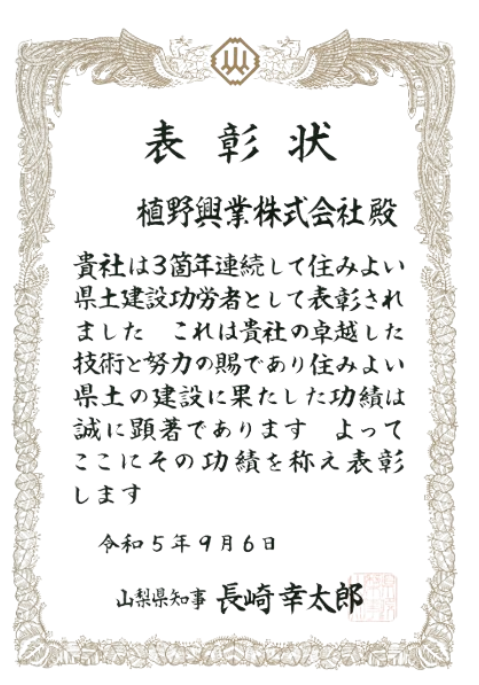 表彰状
植野興業株式会社殿
貴社は3箇年連続して住みよい
県土建設功労者として表彰され
ました　これは貴社の卓越した
技術と努力の賜であり住みよい
県土の建設に果たした功績は
誠に顕著であります　よって
ここにその功績を称え表彰
します
令和5年9月6日
山梨県知事 長崎幸太郎